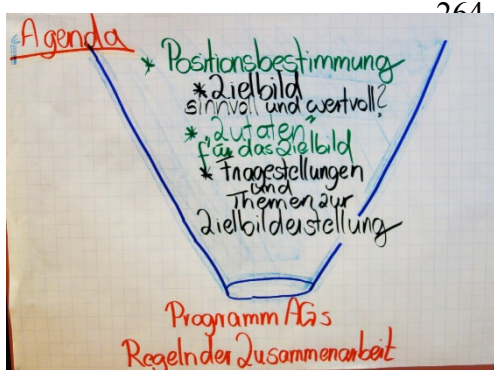 264
Agenda
* Positionsbestimmung
* Zielbild
sinnvoll und wertvoll?
* „Zutaten“
für das Zielbild
* Fragestellungen
und
Themen zur
Zielbilderstellung
Programm AGs
Regeln der Zusammenarbeit